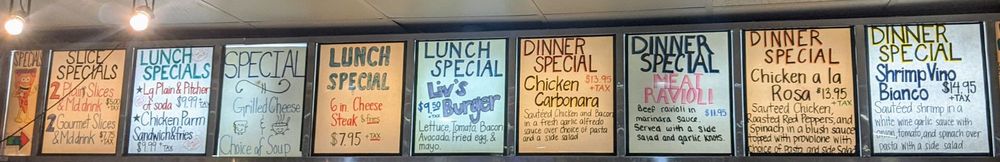 SPECIAL
SLICE
SPECIALS
2 Plain Slices
& Md.drink $5.00 +TAX
2 Gourmet Slices
& Md.drink
LUNCH
SPECIALS
★ La Plain & Pitcher
of soda $19.99 +TAX
★ Chicken Parm
Sandwich & fries
$9.99 +TAX
SPECIAL
Grilled Cheese
&
Choice of Soup
LUNCH
SPECIAL
6 in. Cheese
Steak & fries
$7.95 +TAX
LUNCH
SPECIAL
Liv's
$9.50 Burger
+TAX
Lettuce, Tomato, Bacon
Avocado, fried egg, &
mayo.
DINNER
SPECIAL
Chicken $13.95
Carbonara +TAX
Sautéed Chicken and Bacon
in a fresh garlic alfredo
sauce over choice of pasta
and a side salad
DINNER
SPECIAL
MEAT
RAVIOLI
Beef ravioli in $11.95
marinara sauce.
Served with a side
salad and garlic knots.
DINNER
SPECIAL
Chicken a la
Rosa $13.95
+TAX
Sautéed Chicken,
Roasted Red Peppers, and
Spinach in a blush sauce
topped with provolone with
choice of Pasta and side Salad
DINNER
SPECIAL
Shrimp Vino
Bianco $14.95
+TAX
Sautéed shrimp in a
white wine garlic sauce with
tomato, and spinach over
pasta with a side salad